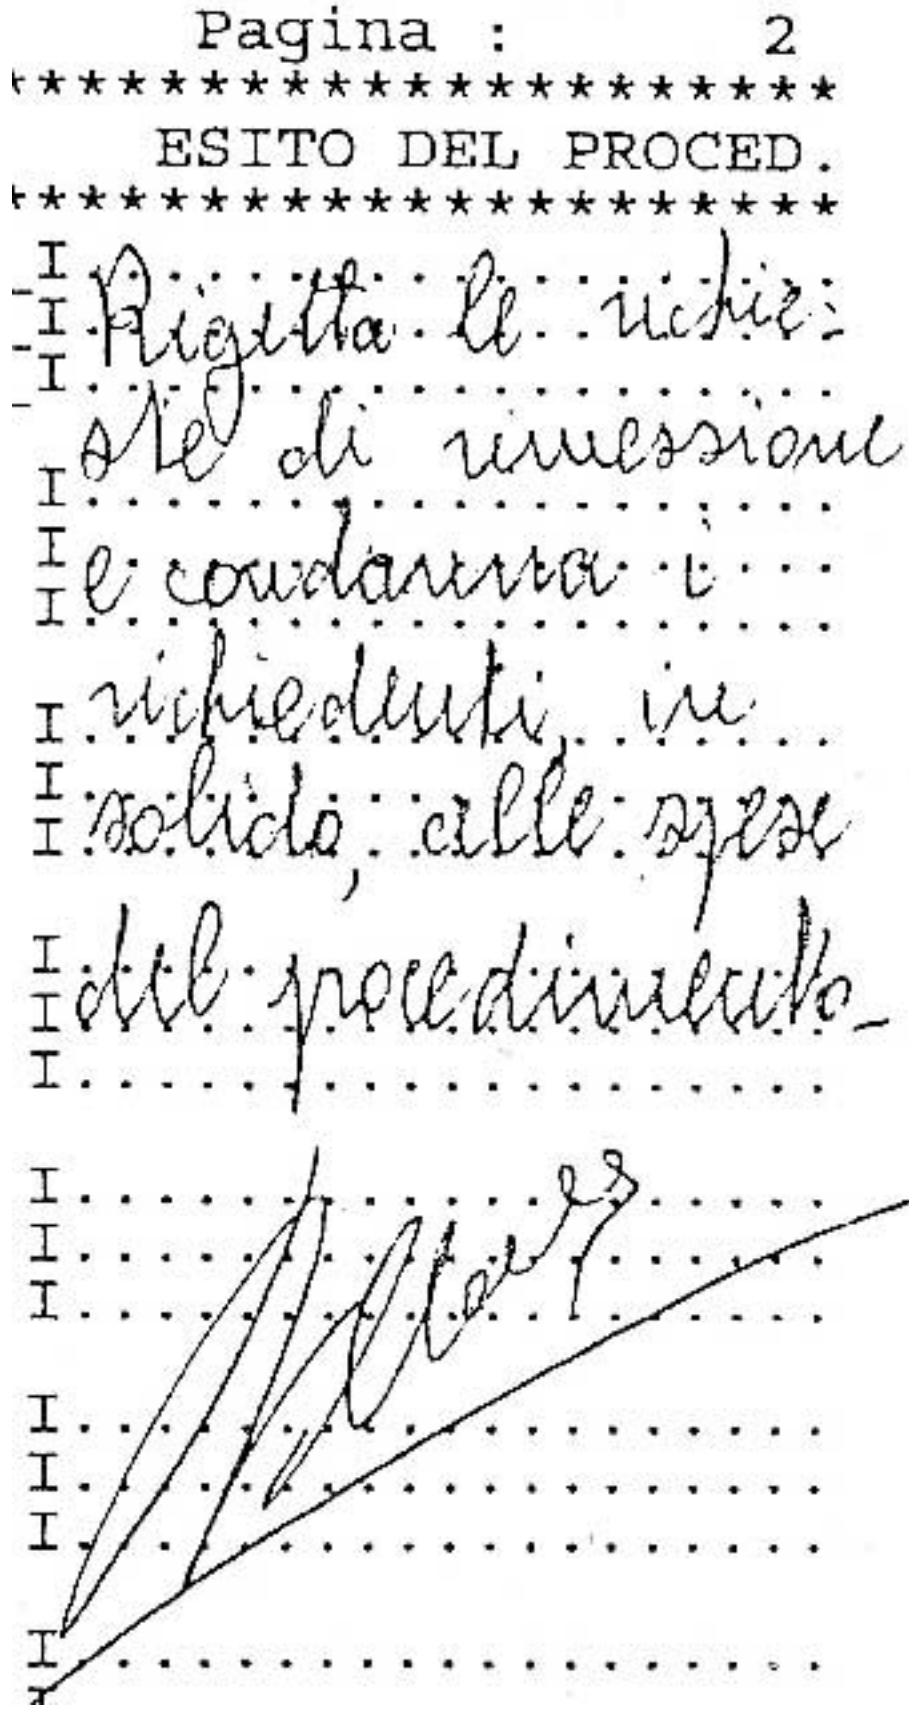 Pagina : 2
*********************
ESITO DEL PROCED.
*********************
Rigetta le richie-
ste di rimessione
e condanna i
richiedenti, in
solido, alle spese
del procedimento_